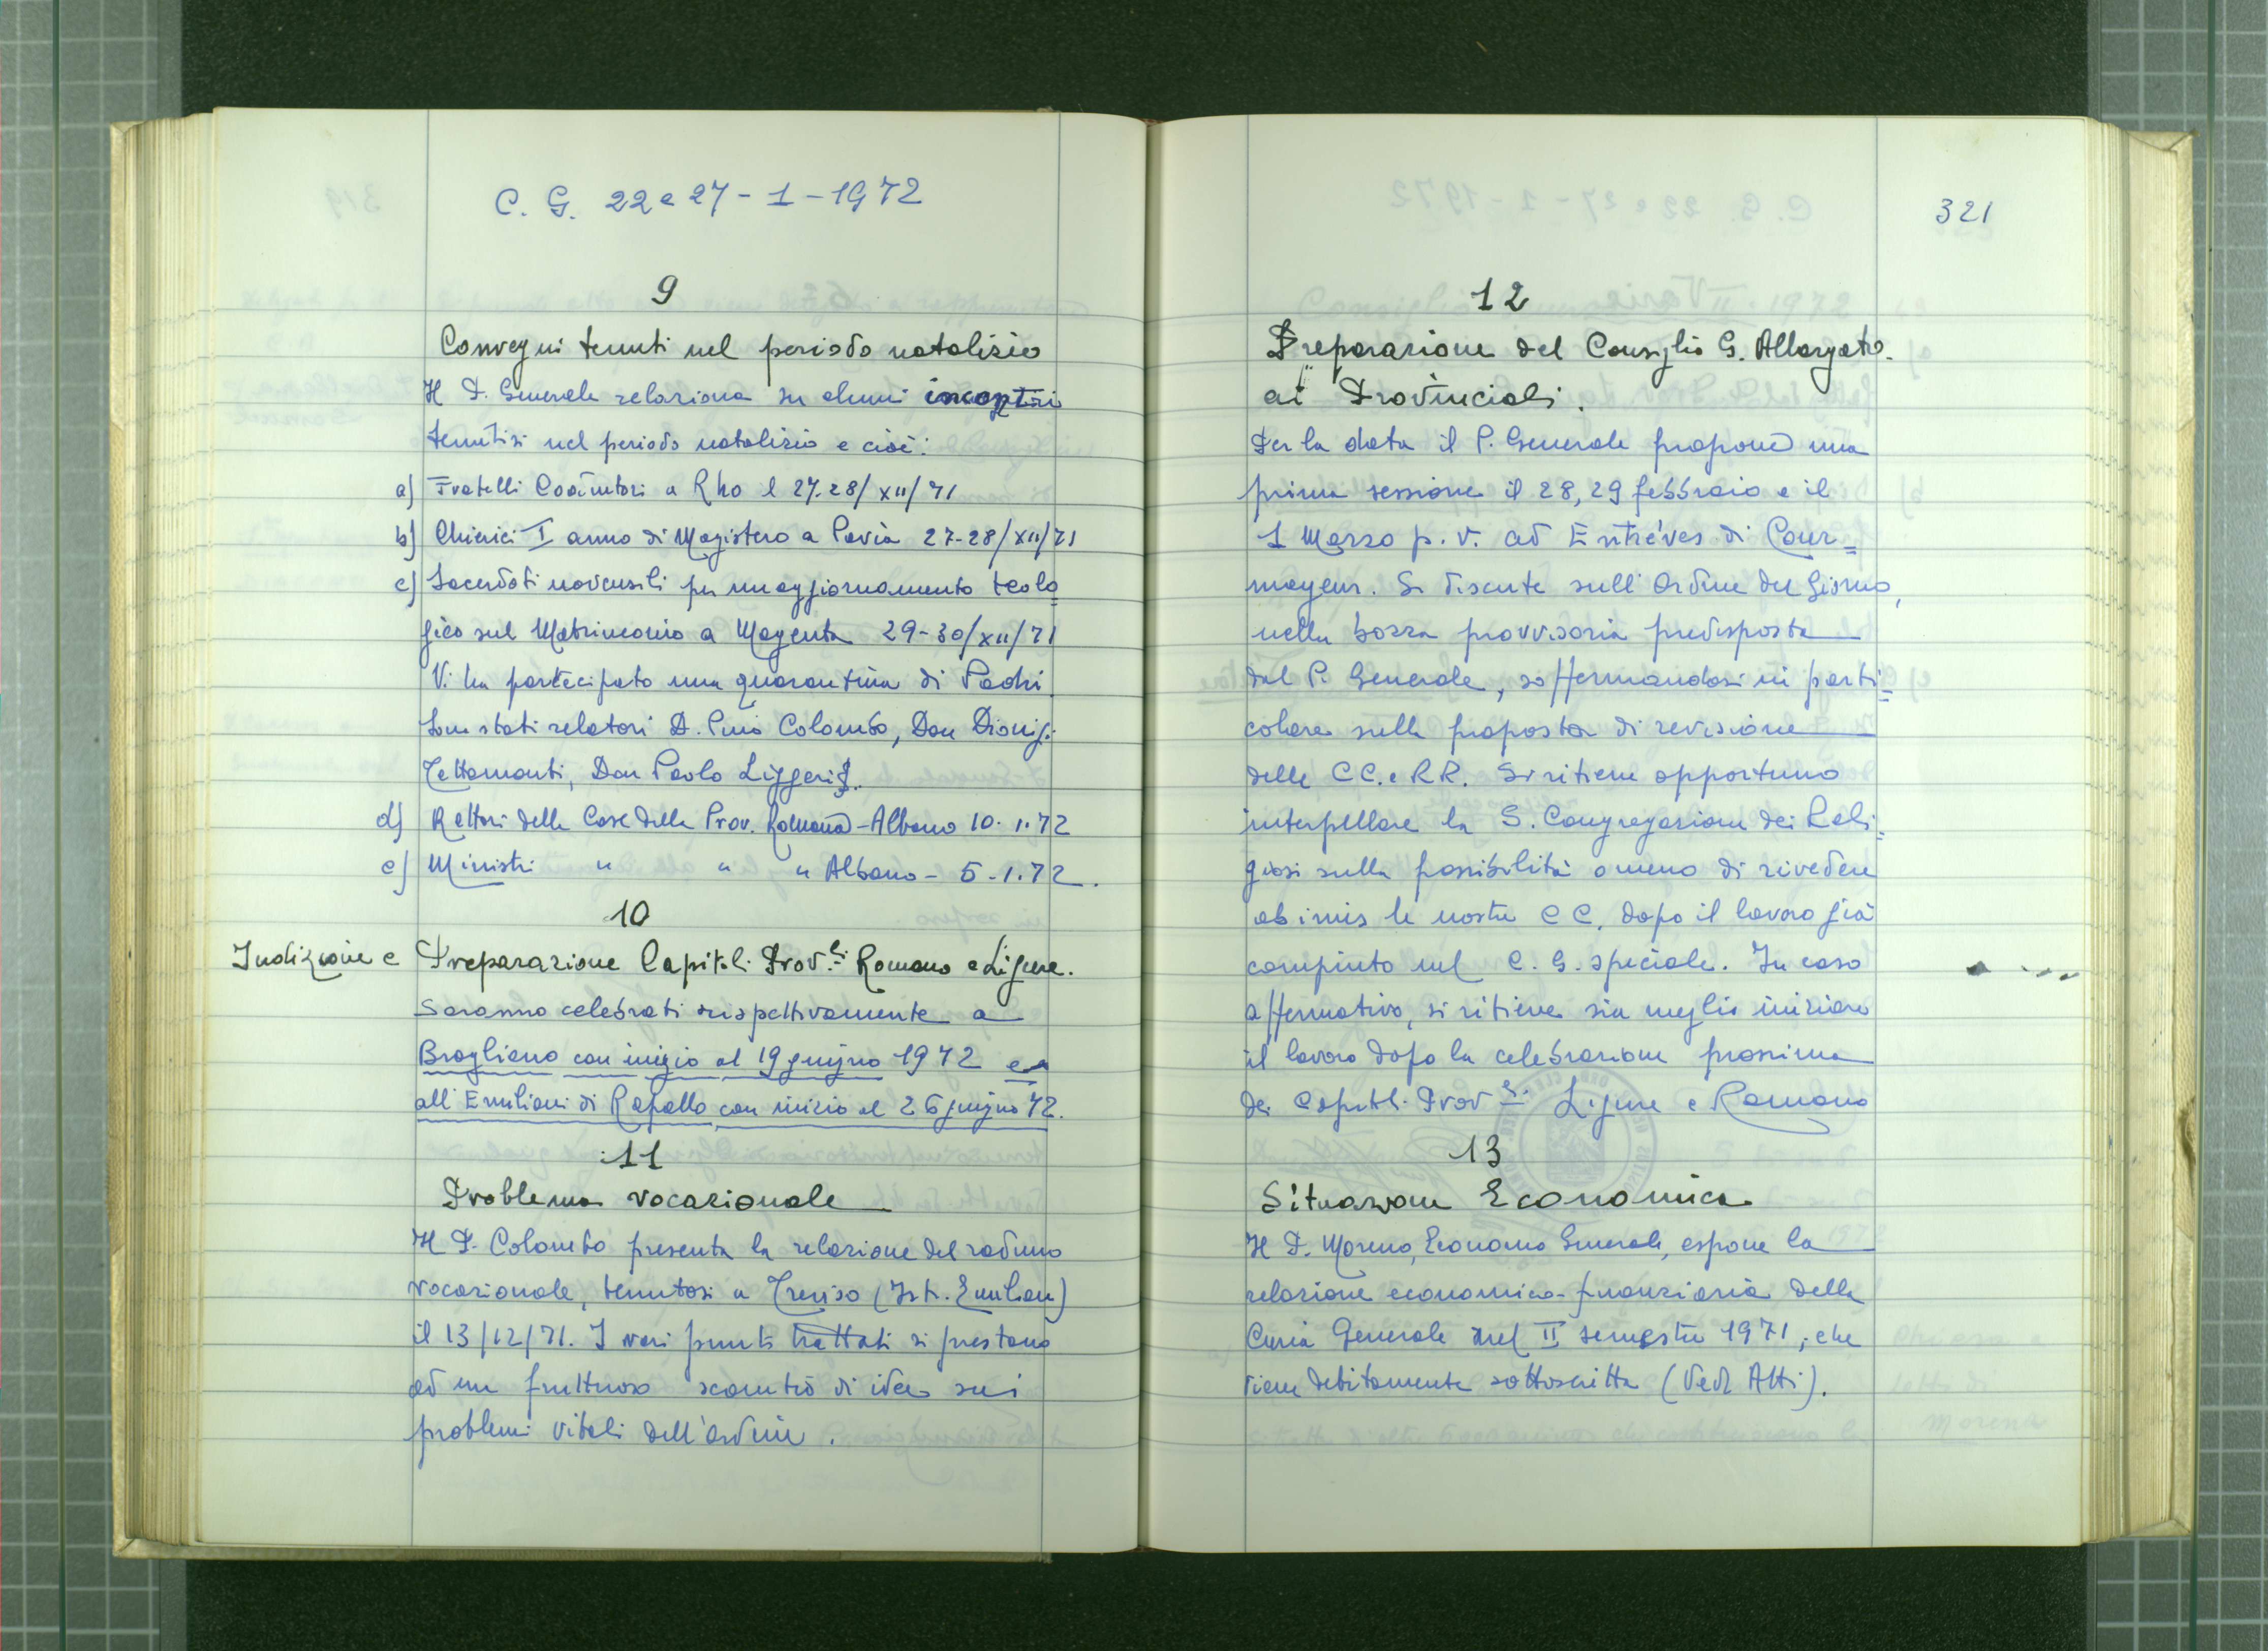 C. G. 22 e 27 - 1 - 1972
9
Convegni tenuti nel periodo natalizio
Il P. Generale relaziona su alcuni incontri
tenutisi nel periodo natalizio e cioè:
a) Fratelli Coadiutori a Rho il 27-28/XII/71
b) Chierici I anno di Magistero a Pavia 27-28/XII/71
c) Sacerdoti novensili per un aggiornamento teolo=
gico sul Matrimonio a Magenta 29-30/XII/71
Vi ha partecipato una quarantina di Padri.
Sono stati relatori D. Pino Colombo, Don Dionigi
Tettamanti, Don Paolo Liggeri.
d) Rettori delle Case della Prov. Romana - Albano 10.1.72
e) Ministri " " " Albano - 5.1.72.
10
Indizione e Preparazione Capitoli Prov.li Romano e Ligure.
Saranno celebrati rispettivamente a
Broglieno con inizio al 19 giugno 1972 e
all'Emiliani di Rapallo con inizio al 26 giugno 72.
11
Problema vocazionale
Il P. Colombo presenta la relazione del raduno
vocazionale, tenutosi a Treviso (Ist. Emiliani)
il 13/12/71. I vari punti trattati si prestano
ad un fruttuoso scambio di idee sui
problemi vitali dell'ordine.
321
12
Preparazione del Consiglio G. Allargato
ai Provinciali.
Per la data il P. Generale propone una
prima sessione il 28, 29 febbraio e il
1 Marzo p. v. ad Entréves di Cour=
mayeur. Si discute sull'Ordine del Giorno,
nella bozza provvisoria predisposta
dal P. Generale, soffermandosi in parti=
colare sulla proposta di revisione
delle CC. e RR. Si ritiene opportuno
interpellare la S. Congregazione dei Reli=
giosi sulla possibilità o meno di rivedere
ab imis le nostre CC. dopo il lavoro già
compiuto nel C. G. speciale. In caso
affermativo, si ritiene sia meglio iniziare
il lavoro dopo la celebrazione prossima
dei Capitoli Prov.li Ligure e Romano
13
Situazione Economica
Il P. Moreno, Economo Generale, espone la
relazione economica-finanziaria della
Curia Generale nel II semestre 1971, che
viene debitamente sottoscritta (Vedi Atti).